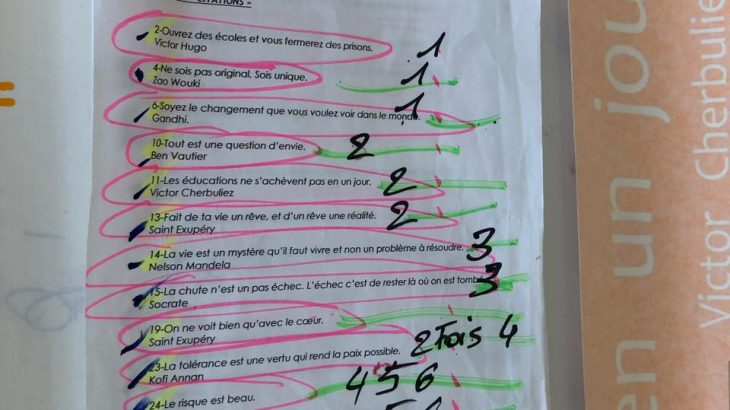 CITATIONS »
2-Ouvrez des écoles et vous fermerez des prisons.
Victor Hugo
1
4-Ne sois pas original. Sois unique.
Zao Wouki
1
6-Soyez le changement que vous voulez voir dans le monde.
Gandhi.
1
10-Tout est une question d'envie.
Ben Vautier
2
11-Les éducations ne s'achèvent pas en un jour.
Victor Cherbuliez
2
13-Fait de ta vie un rêve, et d'un rêve une réalité.
Saint Exupéry
2
14-La vie est un mystère qu'il faut vivre et non un problème à résoudre.
Nelson Mandela
3
15-La chute n'est pas un échec. L'échec c'est de rester là où on est
Socrate
3
19-On ne voit bien qu'avec le cœur.
Saint Exupéry
2 Fois 4
23-La tolérance est une vertu qui rend la paix possible.
Kofi Annan
4 5 6
24-Le risque est beau.
en un jou
Victor Cherbulie